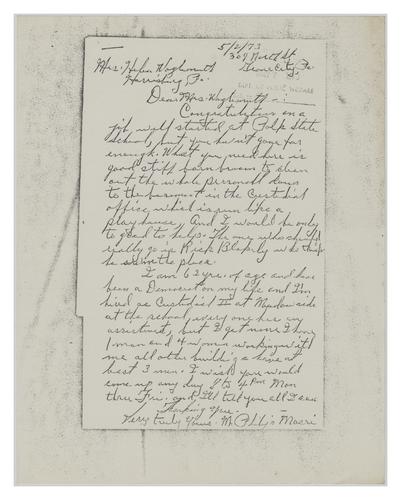 5/2/73
304 North St.
Mrs. Helen Wohlgemuth Grove City, Pa.
Harrisburg, Pa.
Dear Mrs. Wohlgemuth -:
Congratulations on a
job well started at Polk State
School, but you havn't gone far
enough. What you need here is
good stiff barn broom to clean
out the whole personnel down
to the basement in the Custodial
office, which is run like a
playhouse, And I would be only
to glad to help. The one who should
really go is Rick Blakely who thinks
he the place.
I am 62 yrs. of age and have
been a Democrat on my life and I'm
hired as Custodial II at Meadowside
at the school, every one has an
assistant, but I get none I have
1 man and 4 women working with
me all other buildings have at
best 3 men. I wish you would
come up any day 8 to 4 P.M. Mon
thru Fri. and I'll tell you all I know
Thanking you.
Very truly yours. Mr. Macri